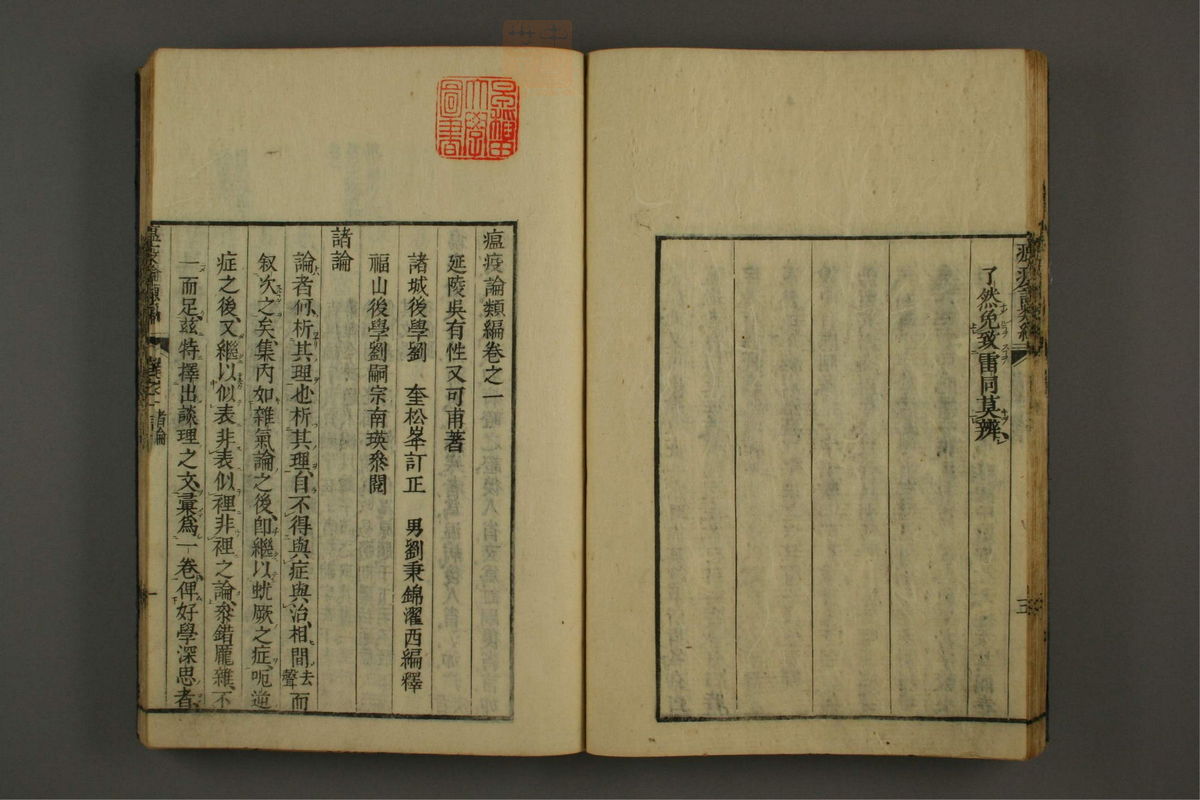 了然免致雷同莫辨
三
瘟疫論類編卷之一
延陵吳有性又可甫著
諸城後學劉 奎松峯訂正 男劉秉錦濯西編釋
福山後學劉嗣宗南瑛叅閱
諸論
論者何析其理也析其理自不得與症與治相間去聲而
叙次之矣集內如雜氣論之後卽繼以蚘厥之症呃逆
症之後又繼以似表非表似裡非裡之論叅錯龐雜不
一而足茲特擇出談理之文彙爲一卷俾好學深思者
瘟疫論類編
諸論
一